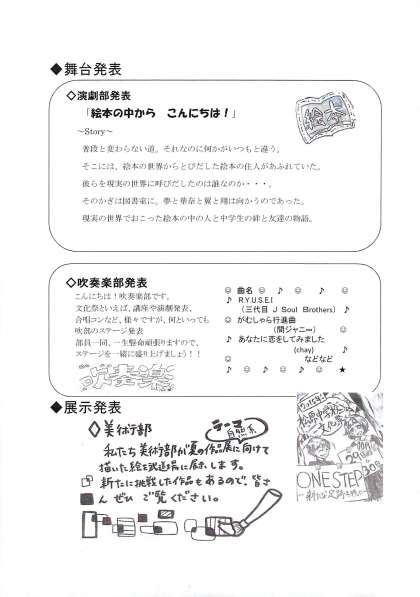 ◆舞台発表
◇演劇部発表
「絵本の中から こんにちは！」
～Story～
絵本
普段と変わらない道。それなのに何かがいつもと違う。
そこには、絵本の世界からとびだした絵本の住人があふれていた。
彼らを現実の世界に呼びだしたのは誰なのか・・・。
そのかぎは図書室に。夢と華奈と翼と翔は向かうのであった。
現実の世界でおこった絵本の中の人と中学生の絆と友達の物語。
◇吹奏楽部発表
こんにちは！吹奏楽部です。
文化祭といえば、講座や演劇発表、
合唱コンなど、様々ですが、何といっても
吹部のステージ発表
部員一同、一生懸命頑張りますので、
ステージを一緒に盛り上げましょう！！
吹奏楽
☺ 曲名 ☺ ♪ ☺ ♪ ☺
♪ R.Y.U.S.E.I
（三代目 J Soul Brothers） ♪
☺ がむしゃら行進曲
（関ジャニ∞） ☺
♪ あなたに恋をしてみました
(chay) ♪
☺ などなど
♪ ☺ ♪ ☺ ♪ ☺ ★
◆展示発表
◇美術部
テーマ
自然系
私たち美術部が夏の作品展に向けて
描いた絵を武道場に展示します。
新たに挑戦した作品もあるので、皆さ
ん ぜひ ご覧ください。
文化祭
29
30
ONE STEP